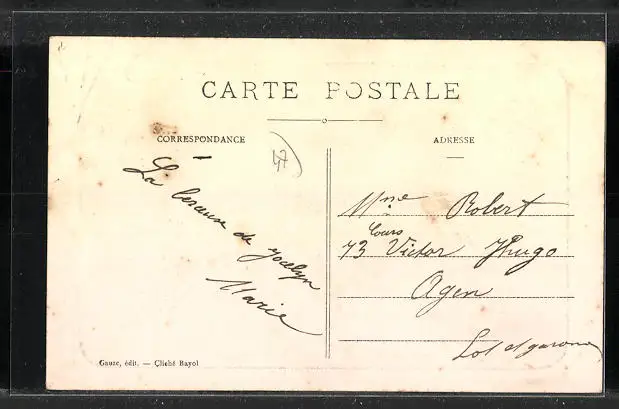 CARTE POSTALE
CORRESPONDANCE
ADRESSE
47
La berceuse de Jocelyn
Marie
Mme Robert
Cours
73 Victor Hugo
Agen
Lot et garonne
Gauze, édit. — Cliché Bayol